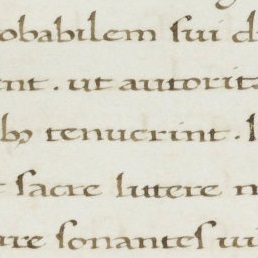 obabilem sui d
nt . ut autorit
b; tenuerint .
t sacre littere n
re sonantes ui